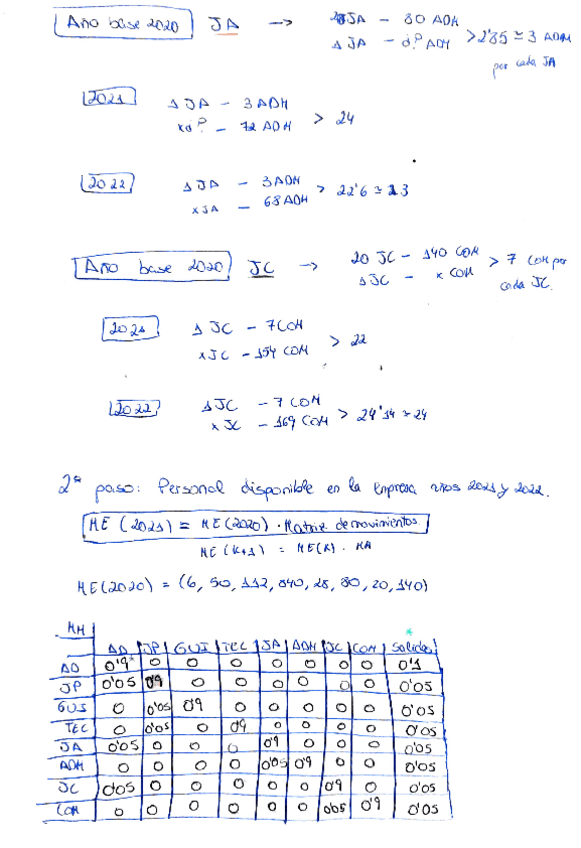 Año base 2020 JA → 28JA - 80 ADM
1 JA - d? ADM > 2'85 ≃ 3 ADM
por cada JA
2021 1 JA - 3 ADM
x d? - 72 ADM > 24
2022 1 JA - 3 ADM
x JA - 68 ADM > 22'6 ≃ 23
Año base 2020 JC → 20 JC - 140 COM
1 JC - x COM > 7 COM por
cada JC.
2021 1 JC - 7 COM
x JC - 154 COM > 22
2022 1 JC - 7 COM
x JC - 169 COM > 24'14 ≃ 24
2º paso: Personal disponible en la empresa años 2021 y 2022.
ME (2021) = ME(2020) · Matriz de movimientos
ME (K+1) = ME(K) · MM
ME(2020) = (6, 50, 112, 840, 28, 80, 20, 140)
MM
AD JP GUI TEC JA ADM JC COM Salidas *
AD 0'9* 0 0 0 0 0 0 0 0'1
JP 0'05 0'9 0 0 0 0 0 0 0'05
GUI 0 0'05 0'9 0 0 0 0 0 0'05
TEC 0 0'05 0 0'9 0 0 0 0 0'05
JA 0'05 0 0 0 0'9 0 0 0 0'05
ADM 0 0 0 0 0'05 0'9 0 0 0'05
JC 0'05 0 0 0 0 0 0'9 0 0'05
COM 0 0 0 0 0 0 0'05 0'9 0'05